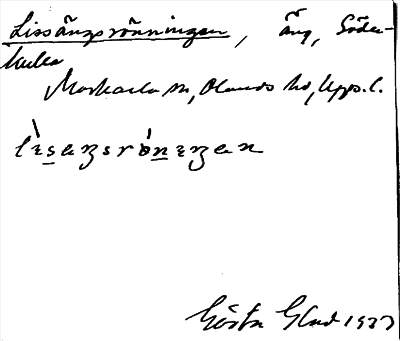 Lissängsrönningen, äng, Söder-
hulla
Markarla sn, Olands hd, Upps. l.
lìsaŋsrö́niŋan
Gösta Glad 1937